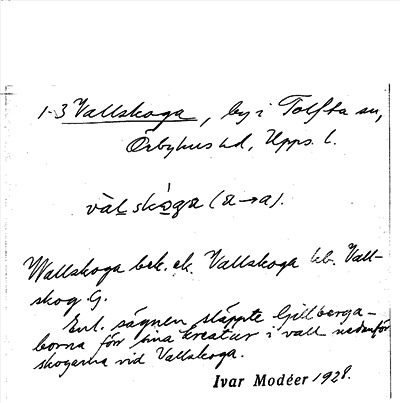 1-3 Vallskoga, by i Tolfta sn,
Örbyhus hd, Upps. l.
vàl skóga (a→a).
Wallskoga bek. ek. Vallskoga hb. Vall-
skog G.
Enl. sägnen släppte Gillberga-
borna förr sina kreatur i vall nedanför
skogarna vid Vallskoga.
Ivar Modéer 1928.